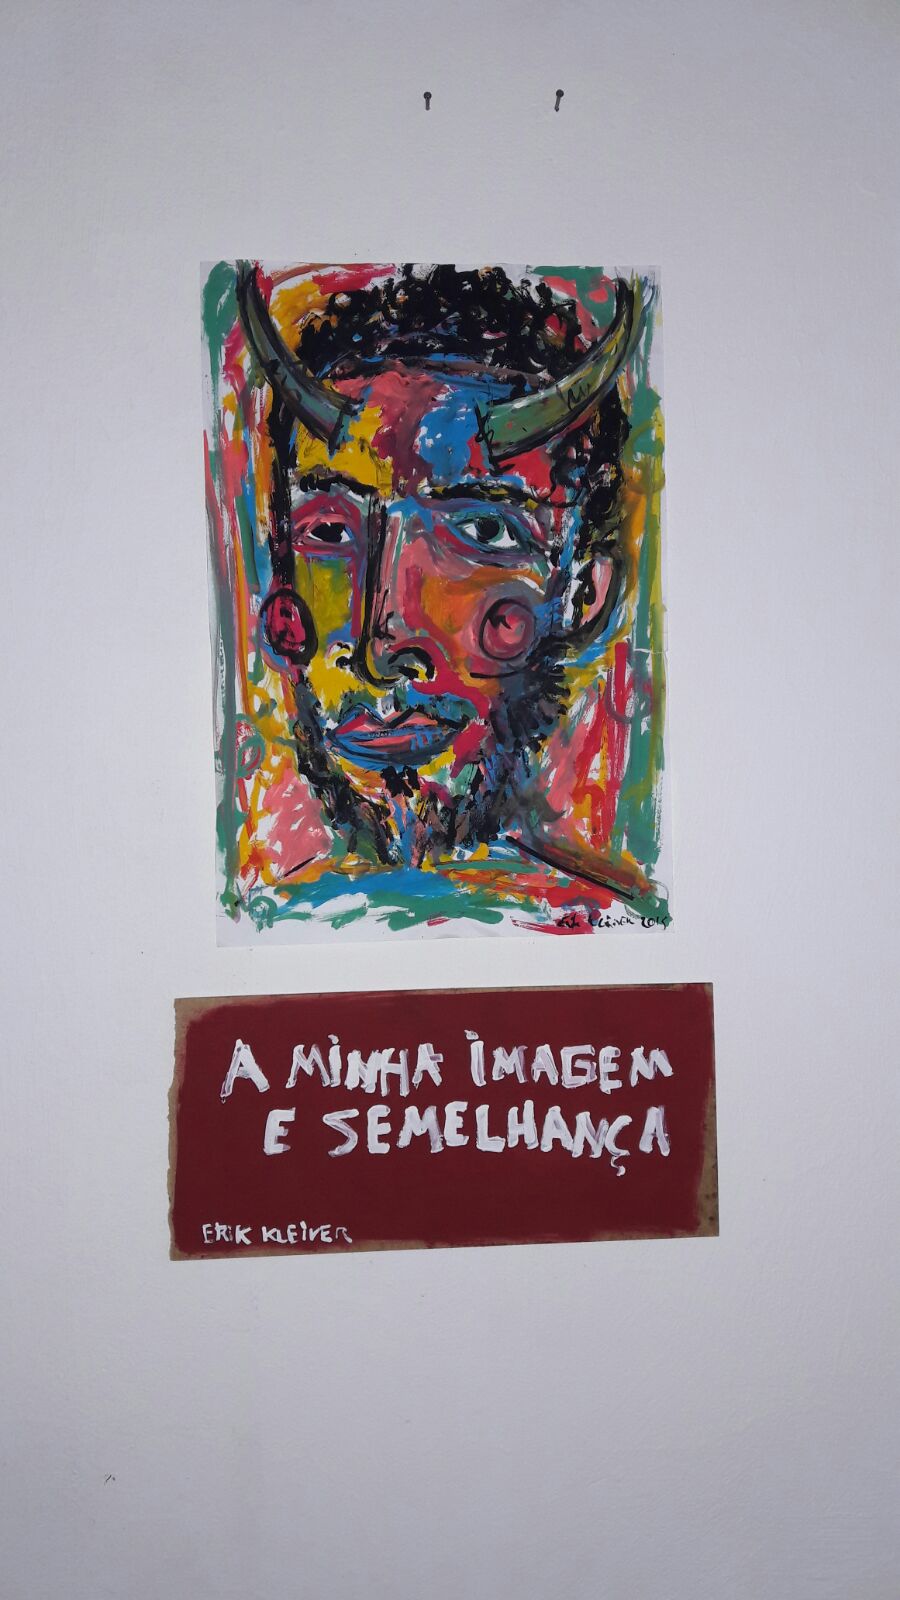 Erik Kleiver 2015
A MINHA IMAGEM
E SEMELHANÇA
ERIK KLEIVER